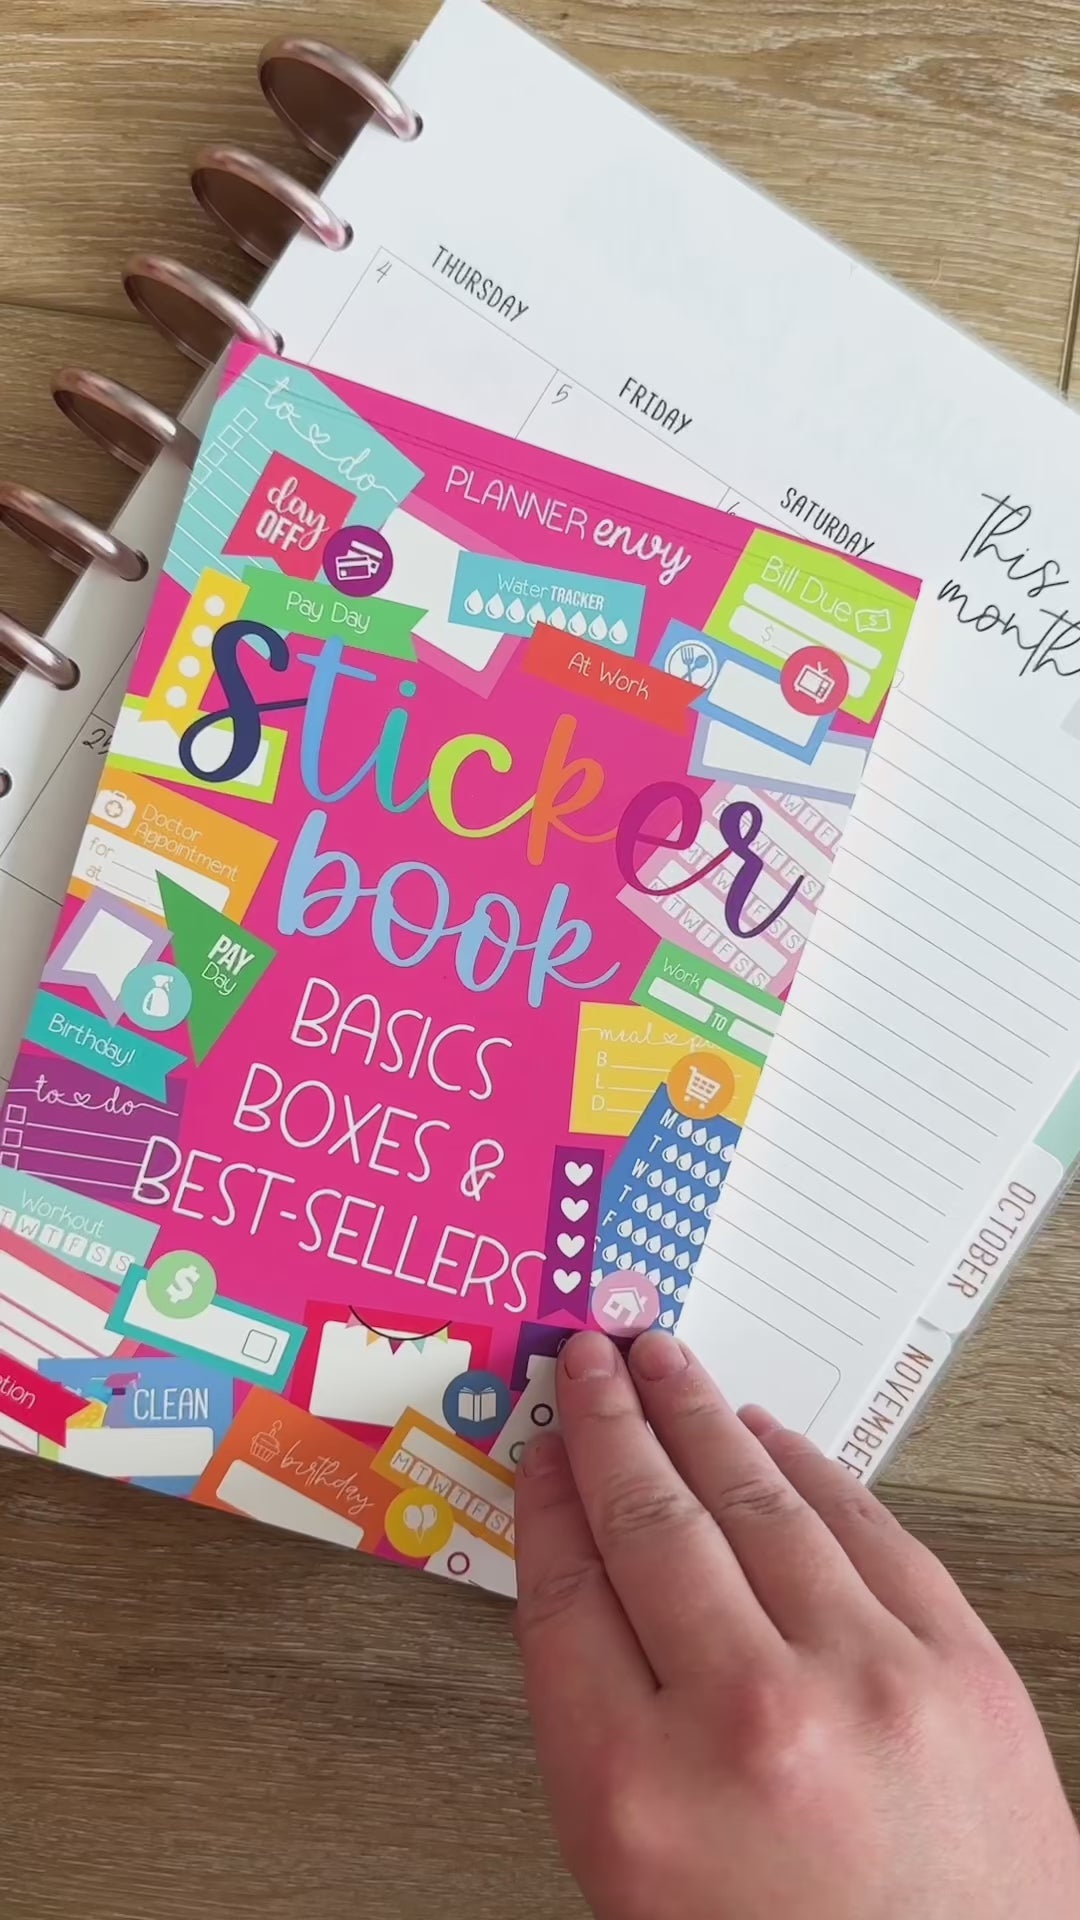 THURSDAY
4
FRIDAY
5
SATURDAY
6
this
month
PLANNER envy
to do
day
OFF
Pay Day
Water TRACKER
At Work
Bill Due
$
Sticker
book
BASICS
BOXES &
BEST-SELLERS
Doctor
Appointment
for
at
PAY
Day
Birthday!
to do
Workout
T W T F S S
$
CLEAN
birthday
M T W T F S S
Work
TO
meal
B
L
D
M
T
W
T
F
S
M T W T F S S
OCTOBER
NOVEMBER